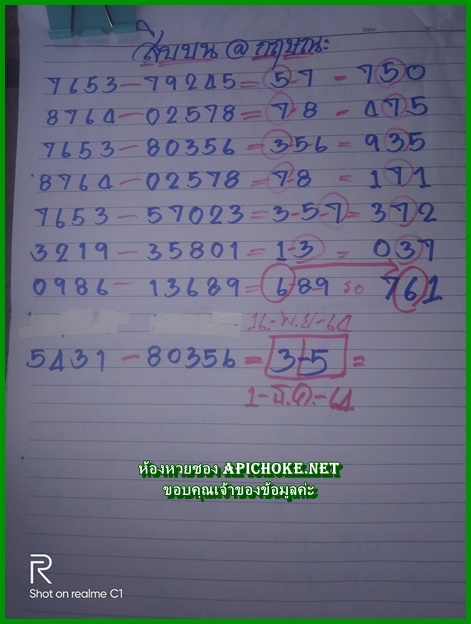 สิบบน @ กฤษณะ
7653 - 79245 = 5-7 - 750
8764 - 02578 = 7-8 - 475
7653 - 80356 = 3-56 = 935
8764 - 02578 = 7-8 = 171
7653 - 57023 = 3-5-7 = 372
3219 - 35801 = 1-3 = 037
0986 - 13689 = 6-89 รอ 761
16-พ.ย-64
5431 - 80356 = 3-5 =
1-ธ.ค.-64
ห้องหวยซอง APICHOKE.NET
ขอบคุณเจ้าของข้อมูลค่ะ
R
Shot on realme C1